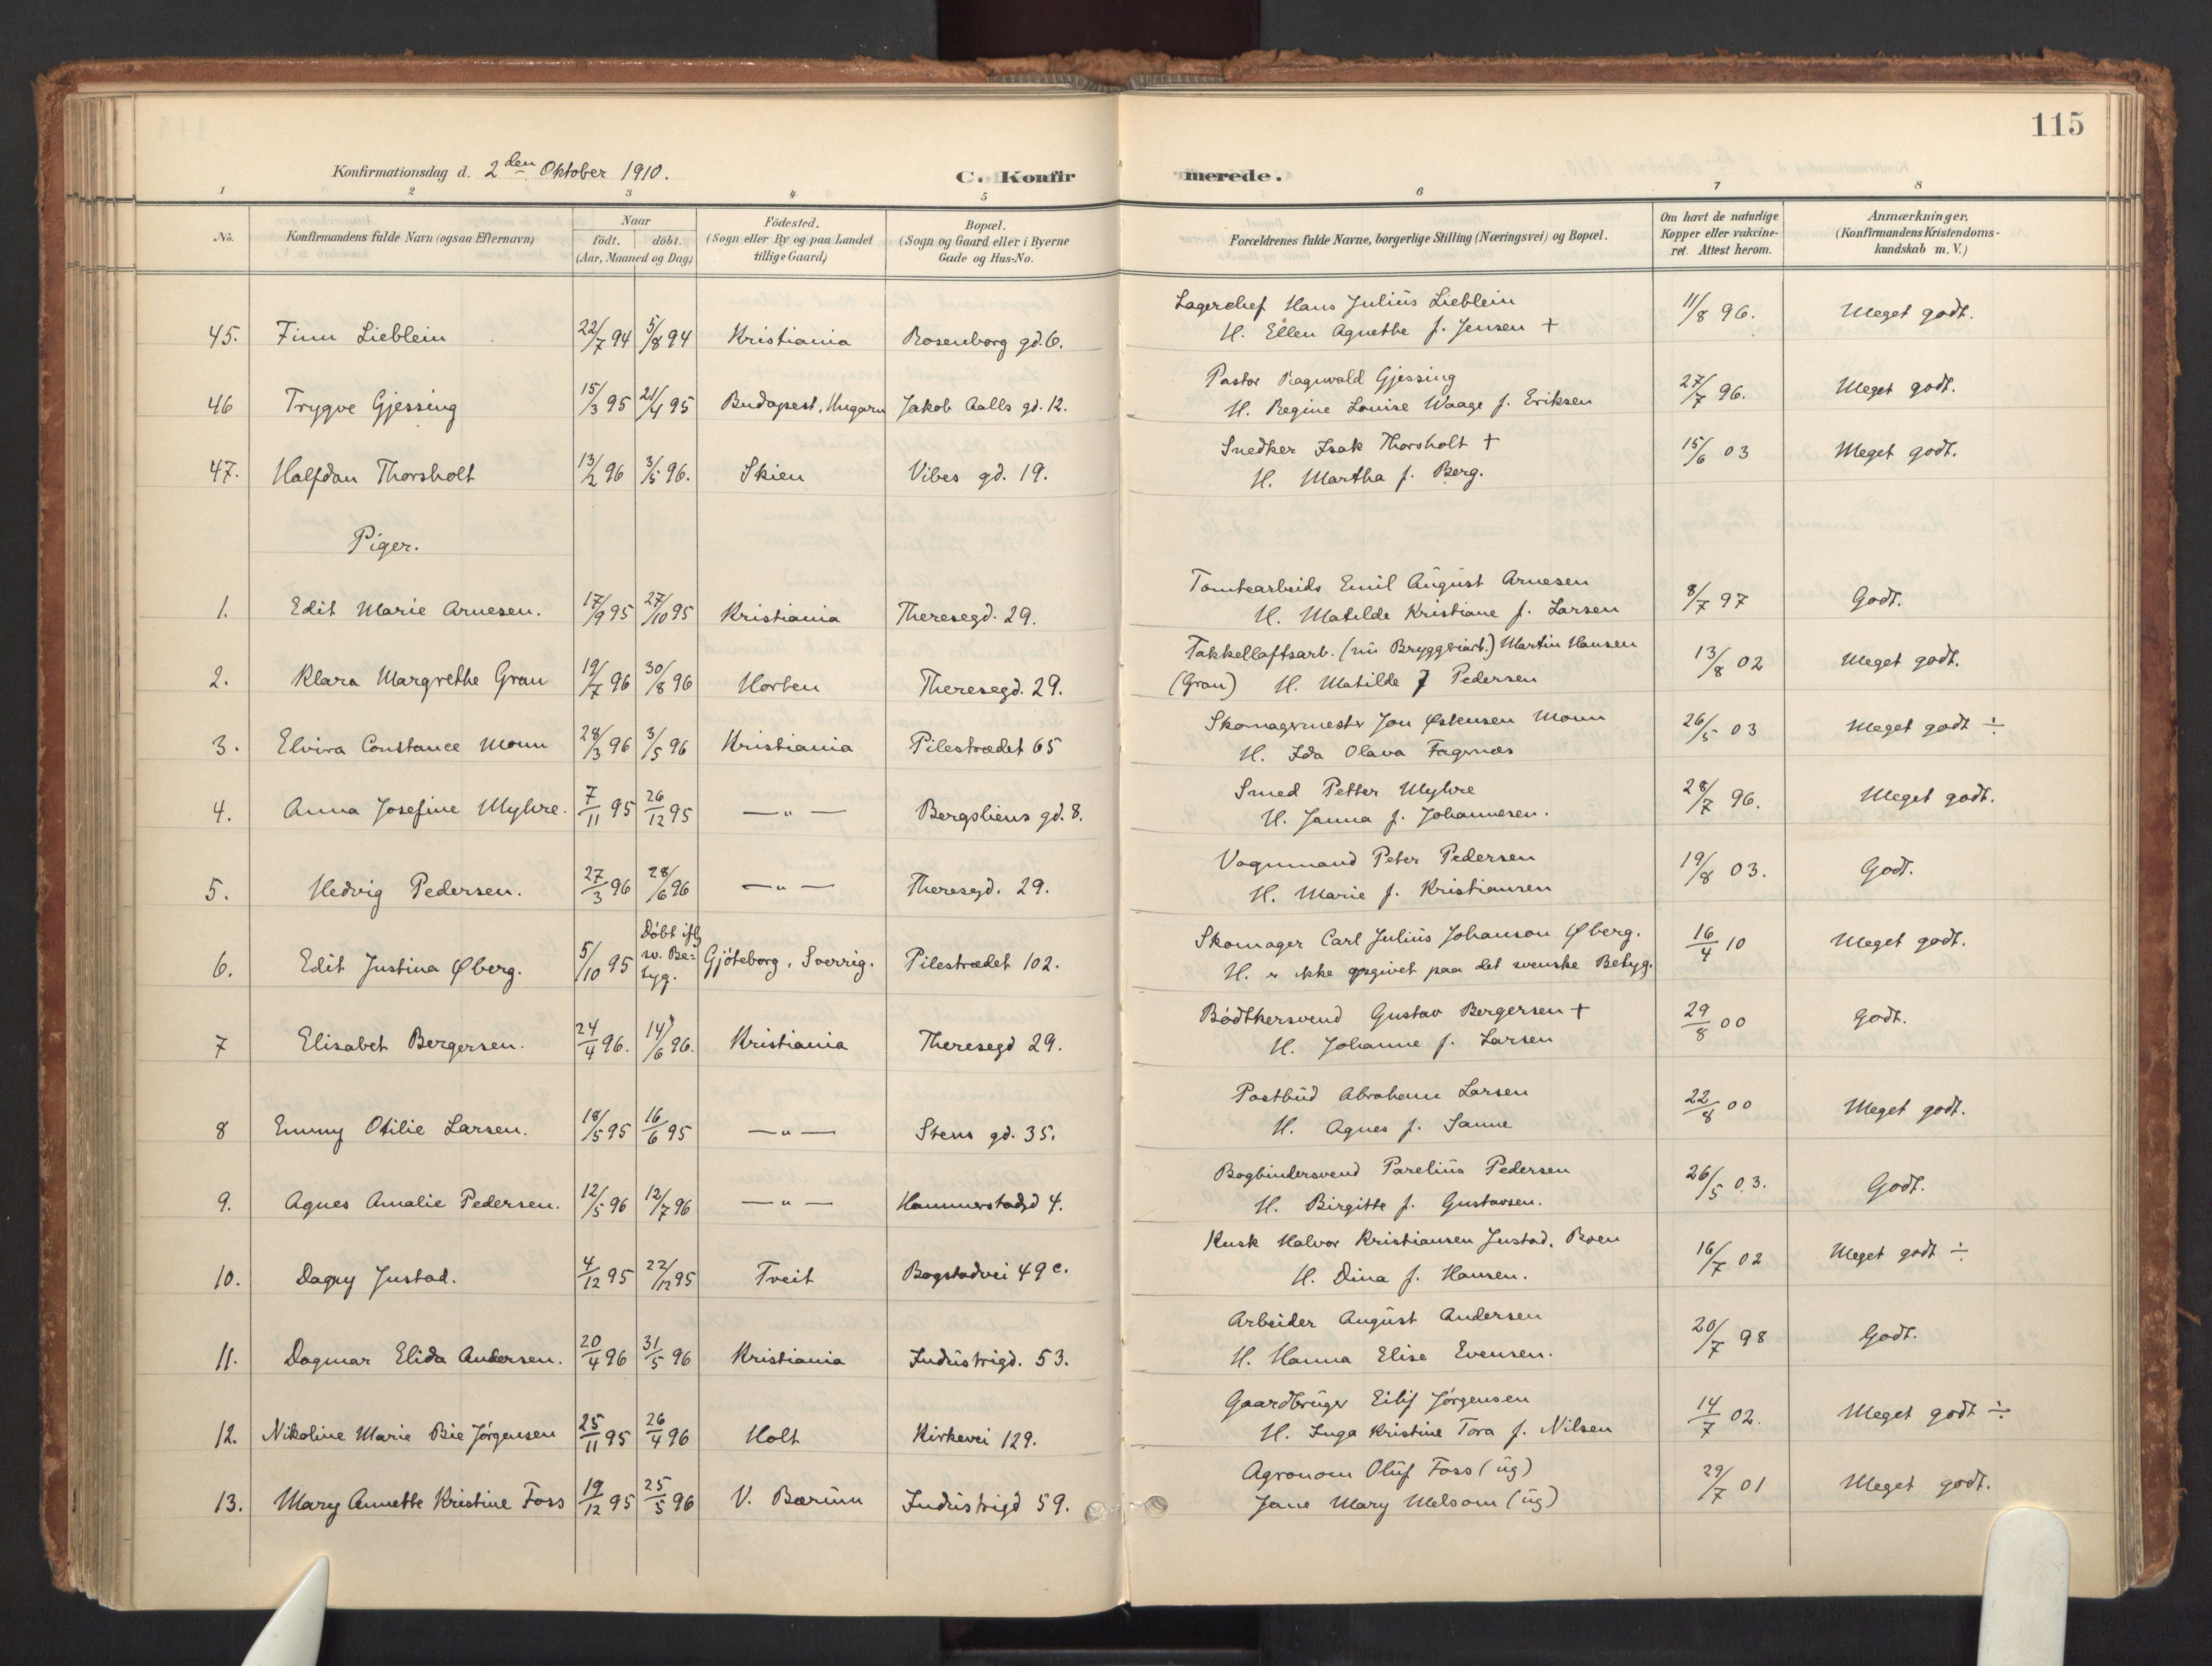 115
Konfirmationsdag d. 2den Oktober 1910.
C. Konfirmerede.
1 2 3 4 5 6 7 8
No.
Konfirmandens fulde Navn (ogsaa Efternavn)
Naar
födt. döbt.
(Aar, Maaned og Dag)
Födested.
(Sogn eller By og paa Landet
tillige Gaard)
Bopæl.
(Sogn og Gaard eller i Byerne
Gade og Hus-No.
Forældrenes fulde Navne, borgerlige Stilling (Næringsvei) og Bopæl.
Om havt de naturlige
Kopper eller vakcine-
ret. Attest herom.
Anmærkninger.
(Konfirmandens Kristendoms-
kundskab m. V.)
45. Finn Lieblein 22/7 94 5/8 94 Kristiania Rosenborg gd. 6.
Lagerchef Hans Julius Lieblein
H. Ellen Agnethe f. Jensen +
11/8 96. Meget godt.
46 Trygve Gjessing 15/3 95 21/4 95 Budapest, Ungarn Jakob Aalls gd. 12.
Pastor Ragnvald Gjessing
H. Regine Louise Waage f. Eriksen
27/7 96. Meget godt.
47. Halfdan Thorsholt 13/2 96 3/5 96. Skien Vibes gd. 19.
Snedker Isak Thorsholt +
H. Martha f. Berg.
15/6 03 Meget godt.
Piger.
1. Edit Marie Arnesen. 17/9 95 27/10 95 Kristiania Theresegd. 29.
Tomtearbeids Emil August Arnesen
H. Matilde Kristiane f. Larsen
8/7 97 Godt.
2. Klara Margrethe Gran 19/7 96 30/8 96 Horten Theresegd. 29.
Takkelloftsarb. (nu Bryggeriarb.) Martin Hansen
(Gran) H. Matilde f Pedersen
13/8 02 Meget godt.
3. Elvira Constance Monn 28/3 96 3/5 96 Kristiania Pilestrædet 65
Skomagermester Jon Østensen Monn
H. Ida Olava Fagernæs
26/5 03 Meget godt ÷
4. Anna Josefine Myhre. 7/11 95 26/12 95 — " — Bergsliens gd. 8.
Smed Petter Myhre
H. Janna f. Johannesen.
28/7 96. Meget godt.
5. Hedvig Pedersen. 27/3 96 28/6 96 — " — Theresegd. 29.
Vognmand Peter Pedersen
H. Marie f. Kristiansen
19/8 03. Godt.
6. Edit Justina Øberg. 5/10 95 Døbt iflg sv. Be-tyg. Gjöteborg, Sverrig. Pilestrædet 102.
Skomager Carl Julius Johanson Øberg.
H. er ikke opgivet paa det svenske Betyg.
16/4 10 Meget godt.
7 Elisabet Bergersen. 24/4 96. 14/6 96. Kristiania Theresegd 29.
Bødtkersvend Gustav Bergersen +
H. Johanne f. Larsen
29/8 00 Godt.
8 Emmy Otilie Larsen. 18/5 95 16/6 95 — " — Stens gd. 35.
Postbud Abraham Larsen
H. Agnes f. Sanne
22/8 00 Meget godt.
9. Agnes Amalie Pedersen. 12/5 96 12/7 96 — " — Hammerstadgd 4.
Bogbindersvend Parelius Pedersen
H. Birgitte f. Gustavsen.
26/5 03. Godt.
10. Dagny Justad. 4/12 95 22/12 95 Tveit Bogstadvei 49 c.
Kusk Halvor Kristiansen Justad, Boen
H. Dina f. Hansen.
16/7 02 Meget godt ÷
11. Dagmar Elida Andersen. 20/4 96 31/5 96 Kristiania Industrigd. 53.
Arbeider August Andersen
H. Hanna Elise Evensen.
20/7 98 Godt.
12. Nikoline Marie Bie Jørgensen 25/11 95 26/4 96 Holt Kirkevei 129.
Gaardbruger Eilif Jørgensen
H. Inga Kristine Tora f. Nilsen
14/7 02. Meget godt ÷
13. Mary Annette Kristine Foss 19/12 95 25/5 96 V. Bærum Industrigd 59.
Agronom Oluf Foss (ug)
Jane Mary Melsom (ug)
29/7 01 Meget godt.